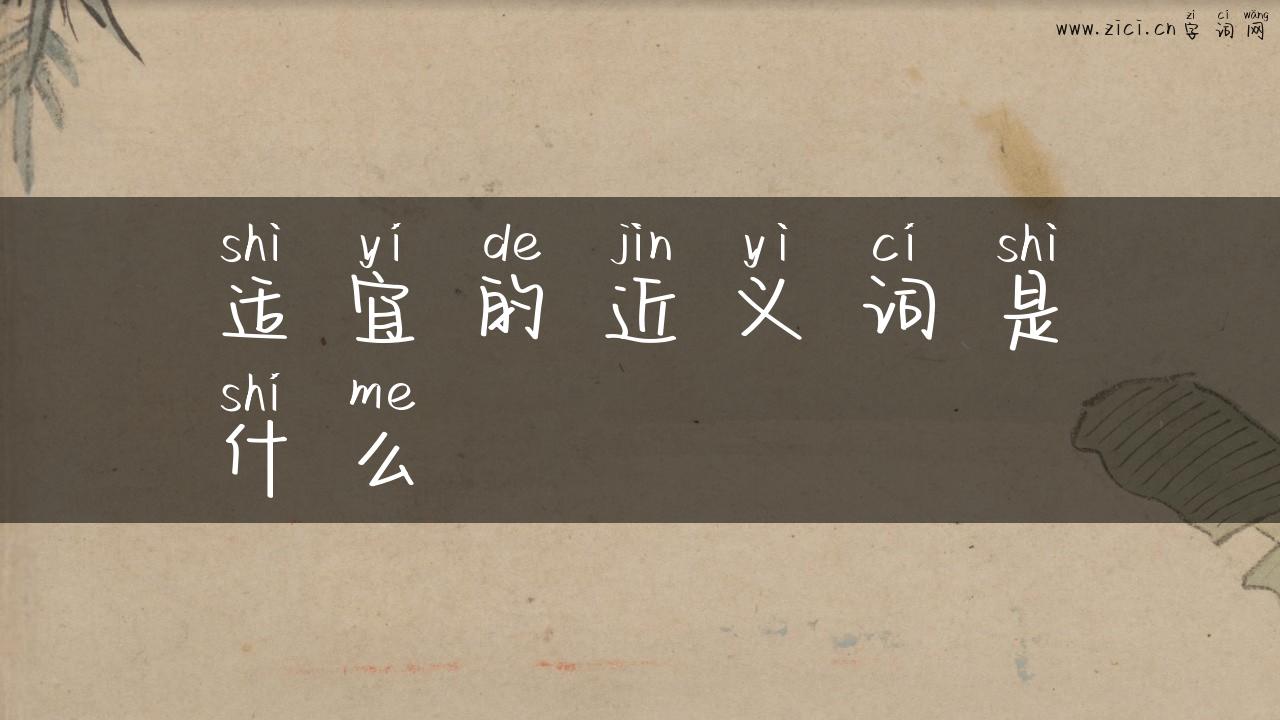 zì cí wǎng
www.zici.cn 字词网
shì yí de jìn yì cí shì
适宜的近义词是
shí me
什么